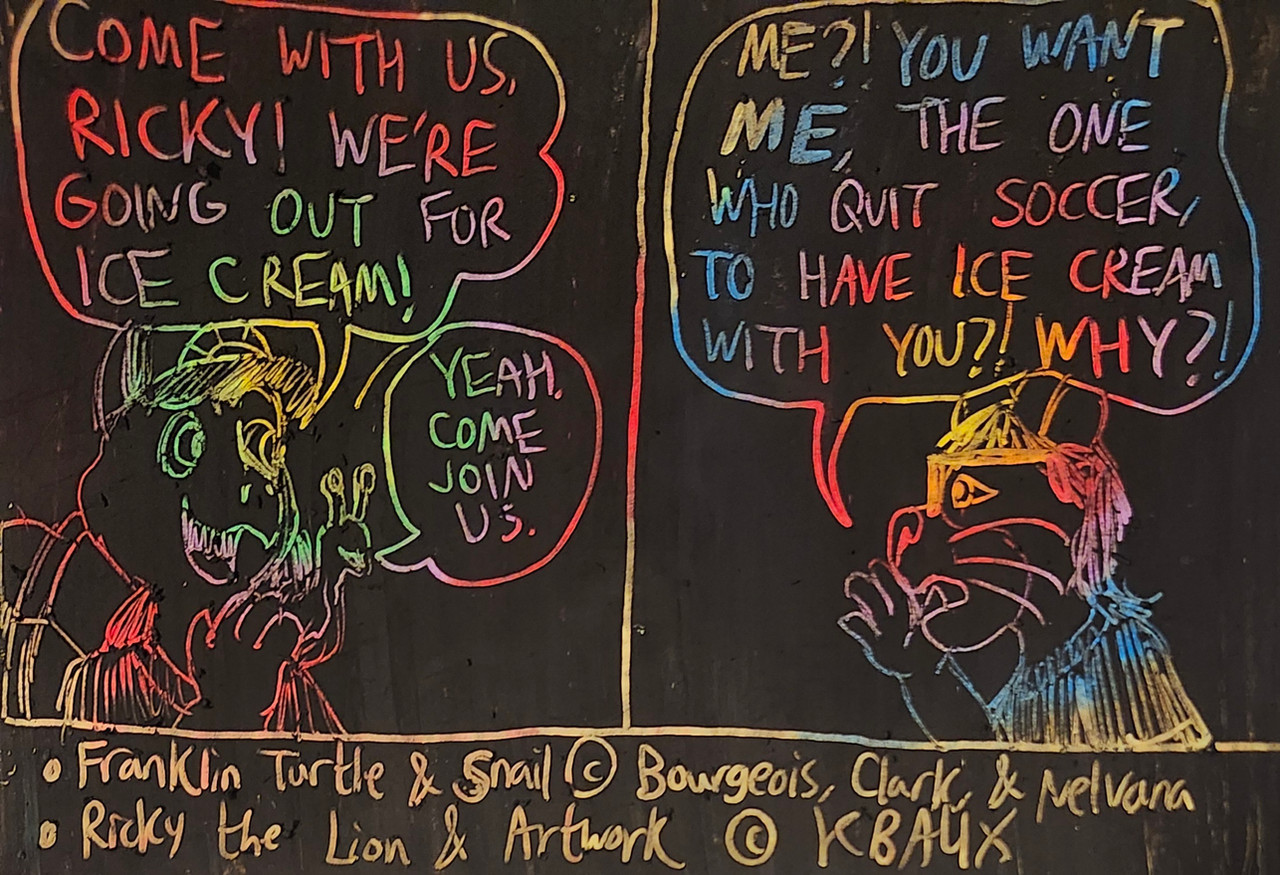 COME WITH US,
RICKY! WE'RE
GOING OUT FOR
ICE CREAM!
YEAH.
COME
JOIN
US.
ME?! YOU WANT
ME, THE ONE
WHO QUIT SOCCER,
TO HAVE ICE CREAM
WITH YOU?! WHY?!
• Franklin Turtle & Snail © Bourgeois, Clark, & Nelvana
• Ricky the Lion & Artwork © KBAUX